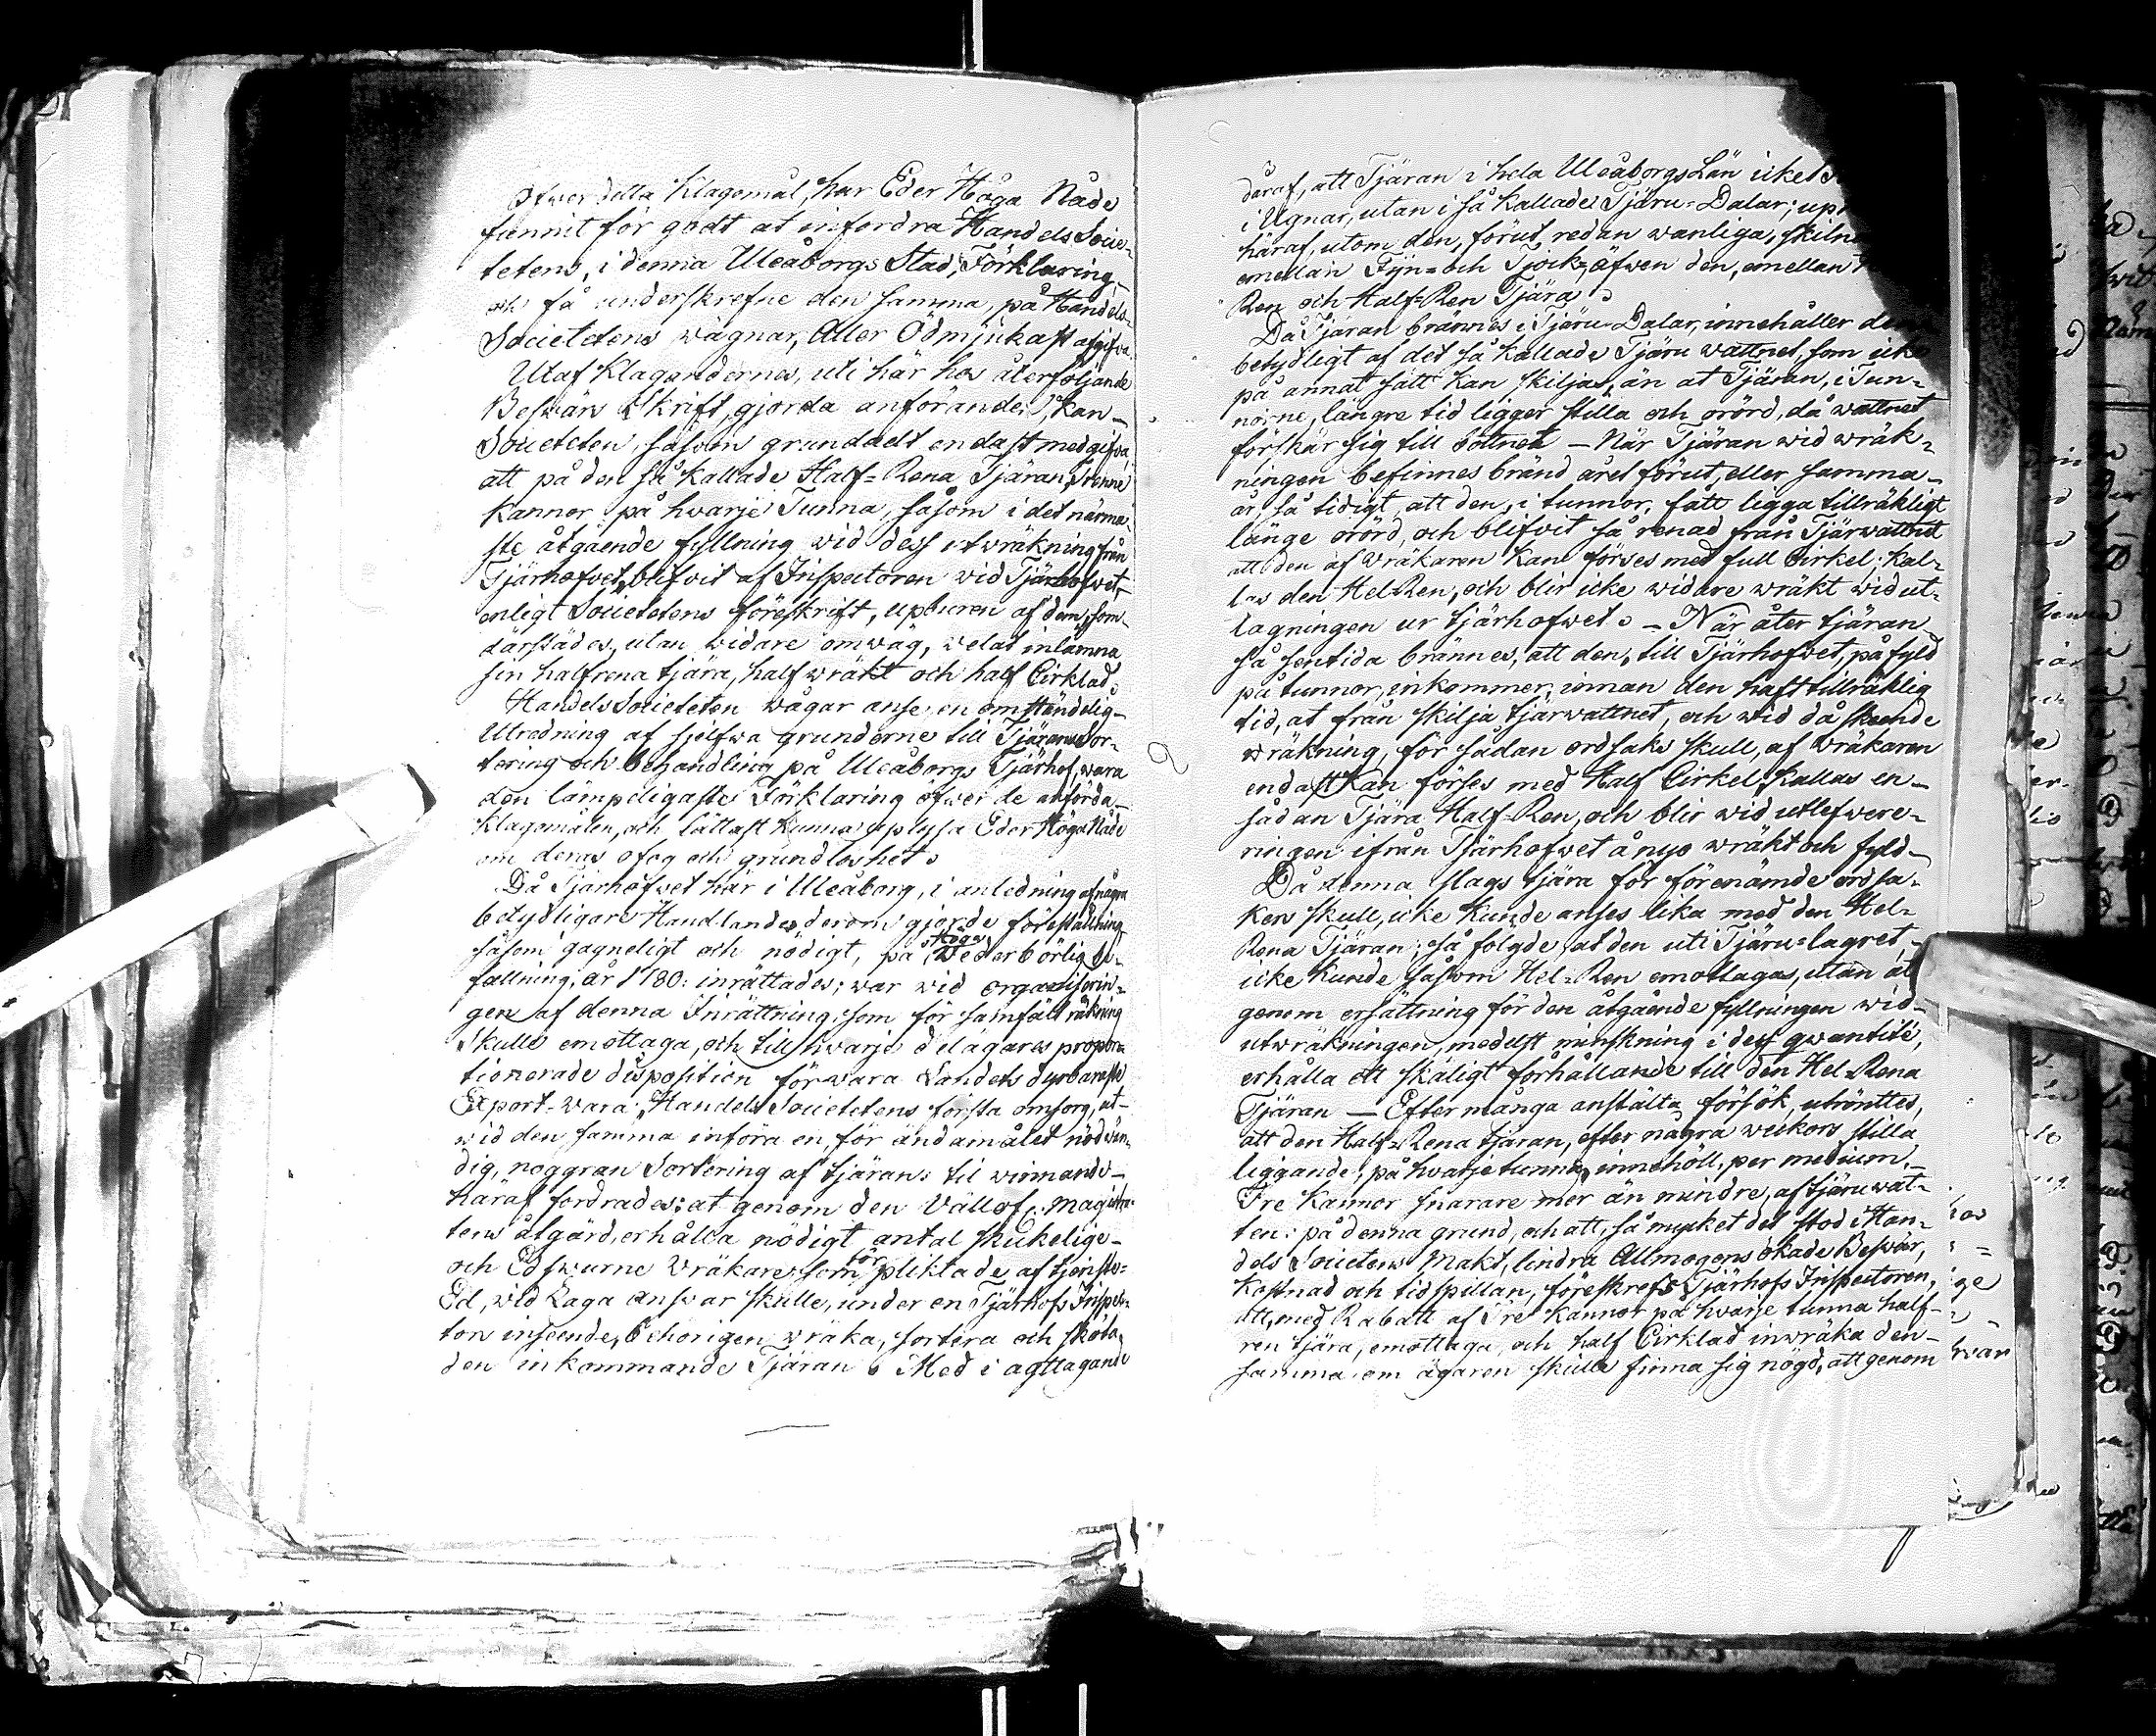 Öfwer detta Klagomål, har Eder Höga Nåde
funnit för godt at infordra Handels Socie-
tetens, i denna Uleåborgs Stad, Förklaring,
och få underskrefne den samma, på Handels
Societetens wägnar, Aller Ödmjukast afgifva.
Utaf Klagandernes, uti här hos återföljande
Beswärs Skrift, gjorda anförande, kan
Societeten, såsom grundadt endast medgifva,
att på den så kallade Half-Rena Tjäran, Trenne
Kannor på hwarje Tunna, såsom i det närma-
ste åtgående fyllning wid dess utwräkning från
Tjärhofvet, blifvit af Inspectoren wid Tjärhofvet,
enligt Societetens föreskrift, upburen af dem, som
därstädes, utan widare omwäg, welat inlämna
sin halfrena tjära, half wräkt och half Cirklad.
Handels Societeten wågar anse, en omständelig
Utredning af sjelfwa grunderne till Tjärans Sor-
tering och behandling på Uleåborgs Tjärhof, wara
den lämpeligaste Förklaring öfwer de anförda
Klagomålen, och lättast kunna uplysa Eder Höga Nåde
om deras ofog och grundlöshet.
Då Tjärhofvet här i Uleåborg, i anledning af några
betydligare Handlandes derom gjorde föreställning
såsom gagneligt och nödigt, på Höga Wederbörlig be-
fallning, år 1780: inrättades; war wid organiserin-
gen af denna Inrättning, som för samfält räkning
skulle emottaga, och till hwarje delägares propor-
tionerade disposition förwara Landets dyrbaraste
Export-wara, Handels Societetens första omsorg, at
wid den samma införa en, för ändamålet nödwän-
dig, noggran Sortering af tjäran: til winnande
häraf fordrades; at genom den Vällofl. Magistra-
tens åtgärd, erhålla nödigt antal skickelige
och Edswurne Wräkare, som för pliktade af tjenste-
Ed, wid Laga answar skulle, under en Tjärhofs Inspec-
tors inseende, behörigen wräka, sortera och sköta,
den inkommande Tjäran. Med i agttagande
däraf, att Tjäran i hela Uleåborgs Län icke
i Ugnar, utan i så kallade Tjäru-Dalar;
häraf, utom den, förut redan wanliga,
emellan Tjn- och Tjock-, äfwen den, emellan
Ren och Half-Ren Tjära.
Då Tjäran brännes i Tjäru-Dalar, innehåller den
betydligt af det så kallade Tjäru wattnet, som icke
på annat sätt kan skiljas, än at Tjäran, i Tun-
norne, längre tid ligger stilla och orörd, då wattnet
förskär sig till bottnet – När Tjäran wid wräk-
ningen befinnes bränd året förut, eller samma
år, så tidigt, att den, i tunnor, fått ligga tillräkligt
länge orörd, och blifvit så renad från Tjärwattnet
att den af Wräkaren kan förses med full Cirkel; kal-
las den Hel Ren, och blir icke widare wräkt wid ut-
tagningen ur tjärhofwet. – När åter tjäran
så sentida brännes, att den, till Tjärhofvet, påfyld
på tunnor, inkommer, innan den haft tillräklig
tid, at från skilja tjärwattnet, och wid då skeende
wräkning, för sådan ordsaks skull, af Wräkaren
endast kan förses med Half Cirkel, kallas en
sådan Tjära Half-Ren, och blir wid utlefwere-
ringen ifrån Tjärhofwet å nyo wräkt och fyld
Då denna slags tjära för förenämde ordsa-
kers skull, icke kunde anses lika med den Hel-
Rena Tjäran; så följde, at den uti Tjäru-lagret,
icke kunde såsom Hel-Ren emottagas, utan at
genom ersättning för den åtgående fyllningen wid
utwräkningen, medelst minskning i dess qwantité,
erhålla ett skäligt förhållande till den Hel-Rena
Tjäran – Efter många anstälta försök, utröntes,
att den Half-Rena tjäran, efter några weckors stilla
liggande, på hwarje tunna innehöll, per medium,
Tre Kannor snarare mer än mindre, af tjäruwat-
ten: på denna grund, och att, så mycket det stod i Han-
dels Societens Makt, lindra Allmogens ökade Beswär,
Kostnad och tidspillan, föreskrefs Tjärhofs Inspectoren,
att, med Rabatt af Tre Kannor på hwarje tunna half-
ren tjära, emottaga, och half Cirklad inwräka den
samma, om ägaren skulle finna sig nögd, att genom